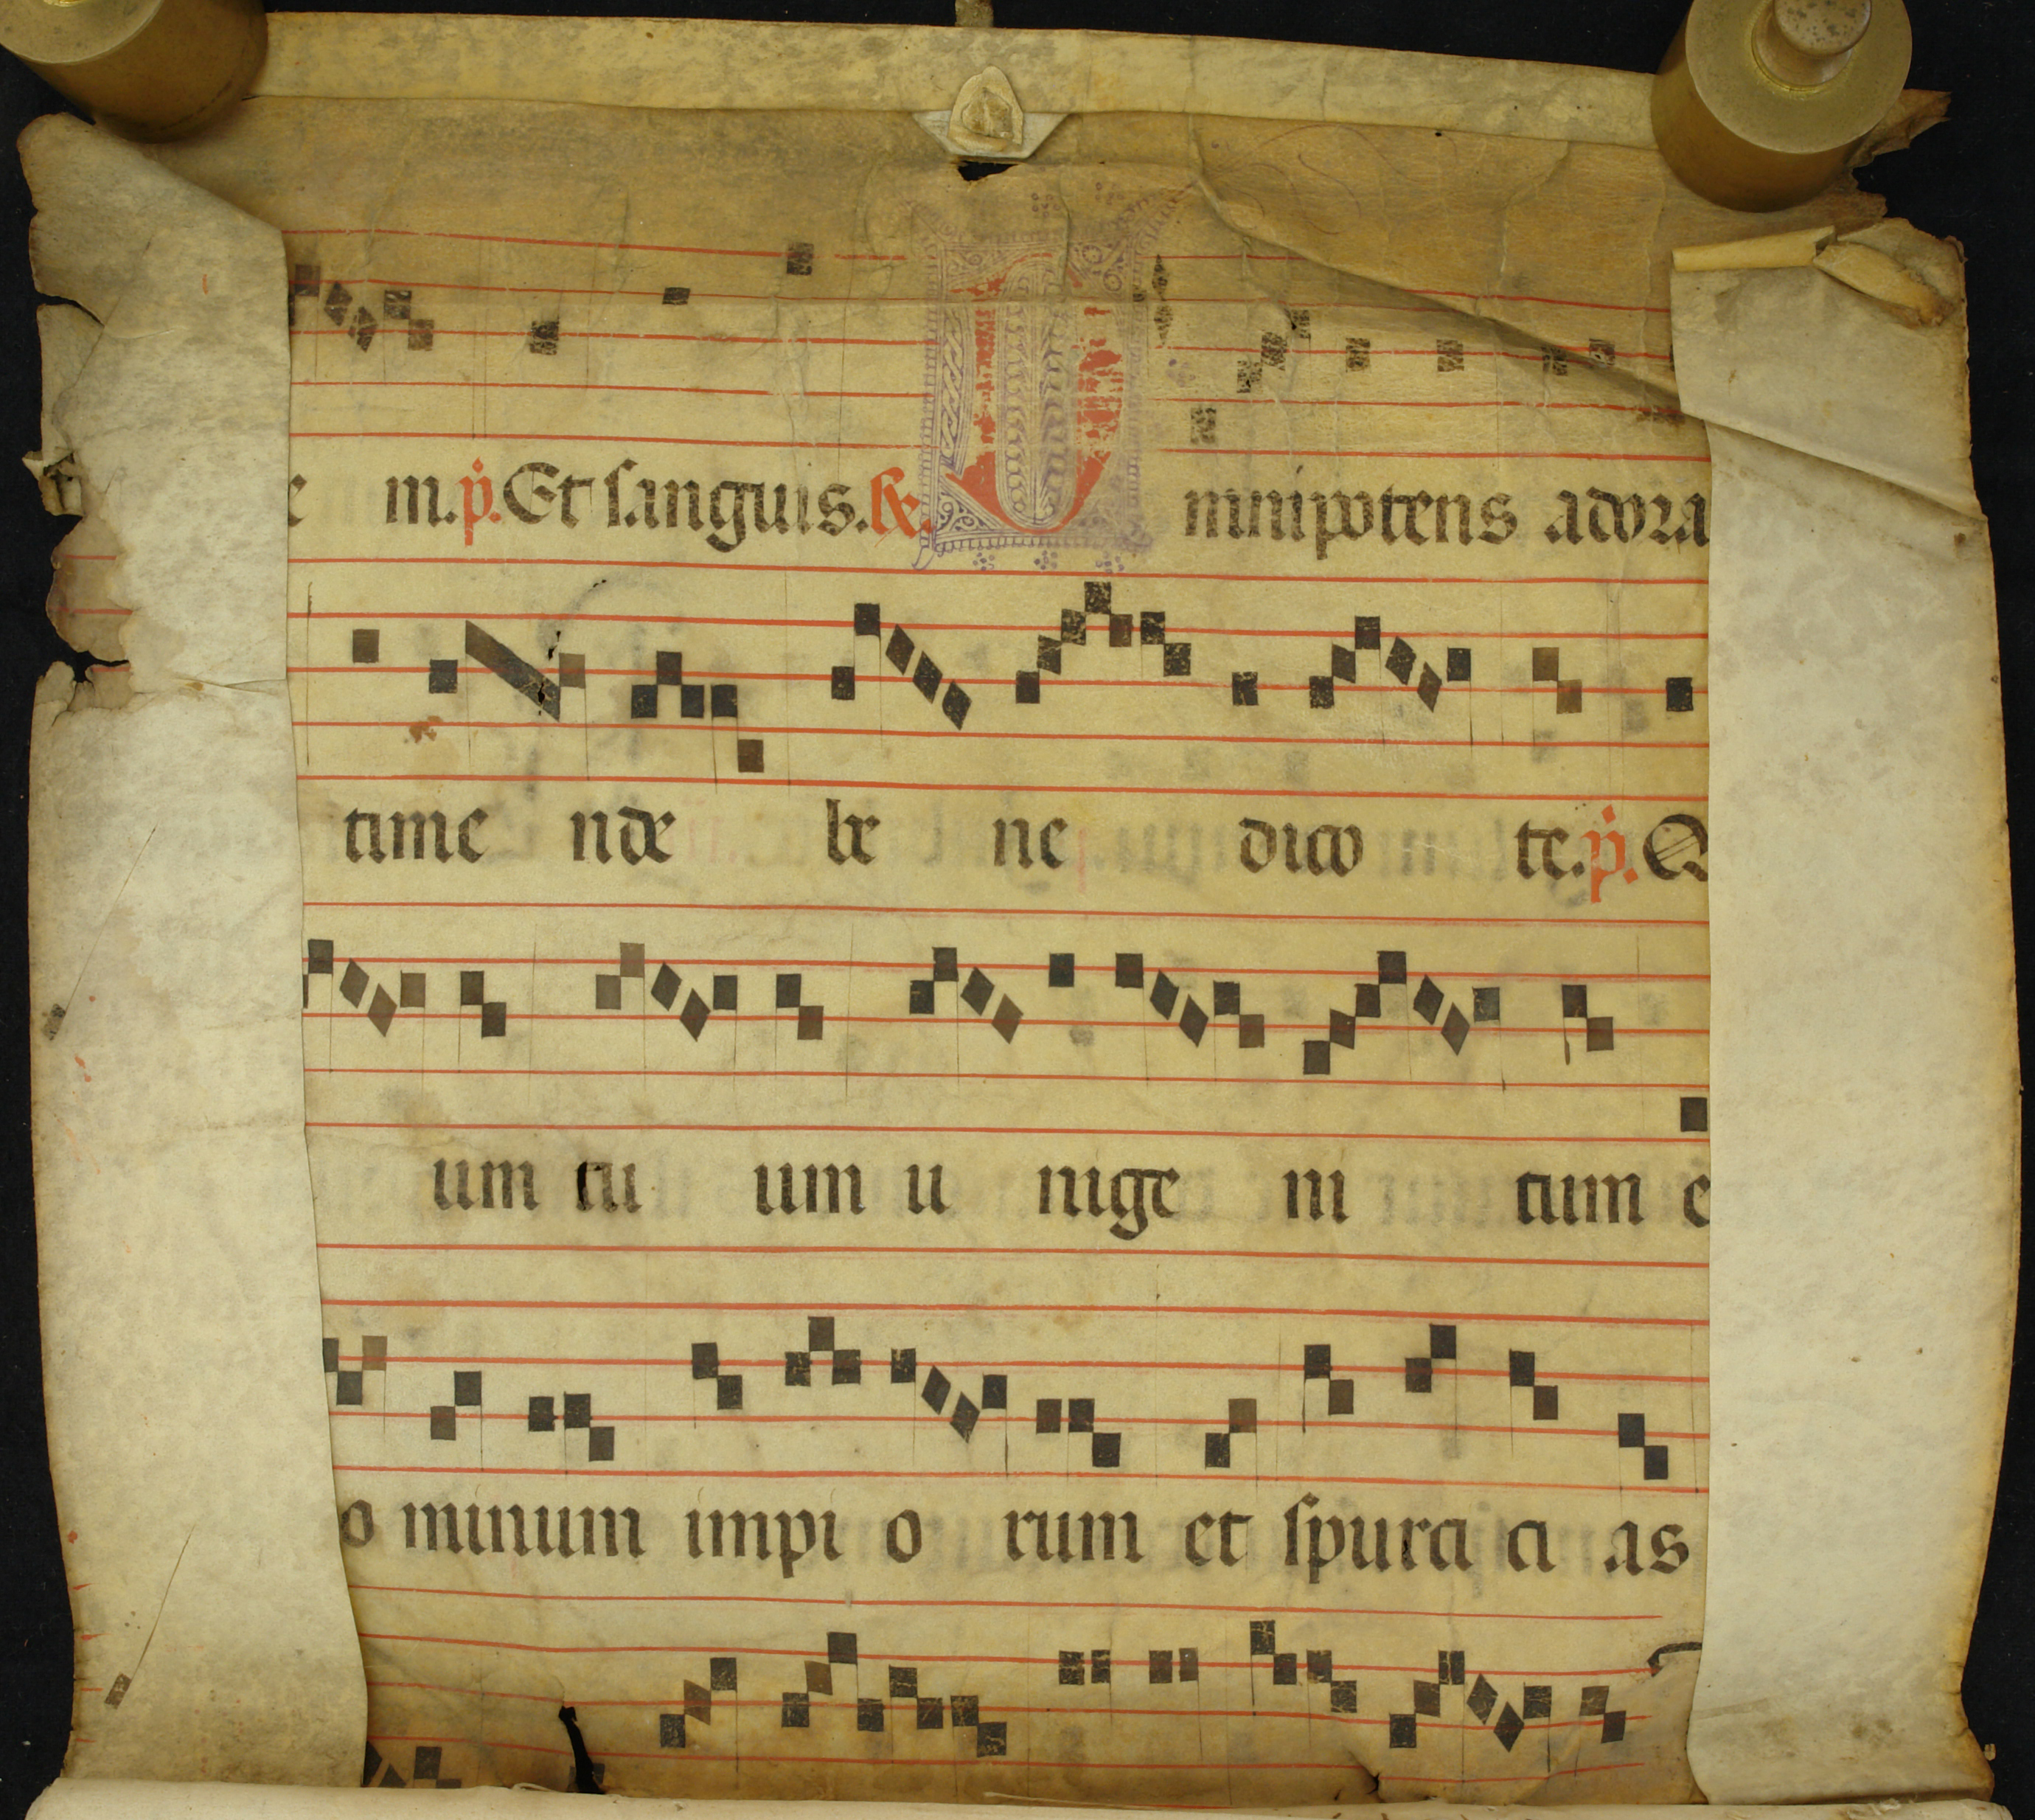 e m. p̾. Et sanguis. ℟. O mnipotens adora
time nde be ne dico te. p̾. Q
um tu um u nige ni tum e
o minum impi o rum et spurci ci as